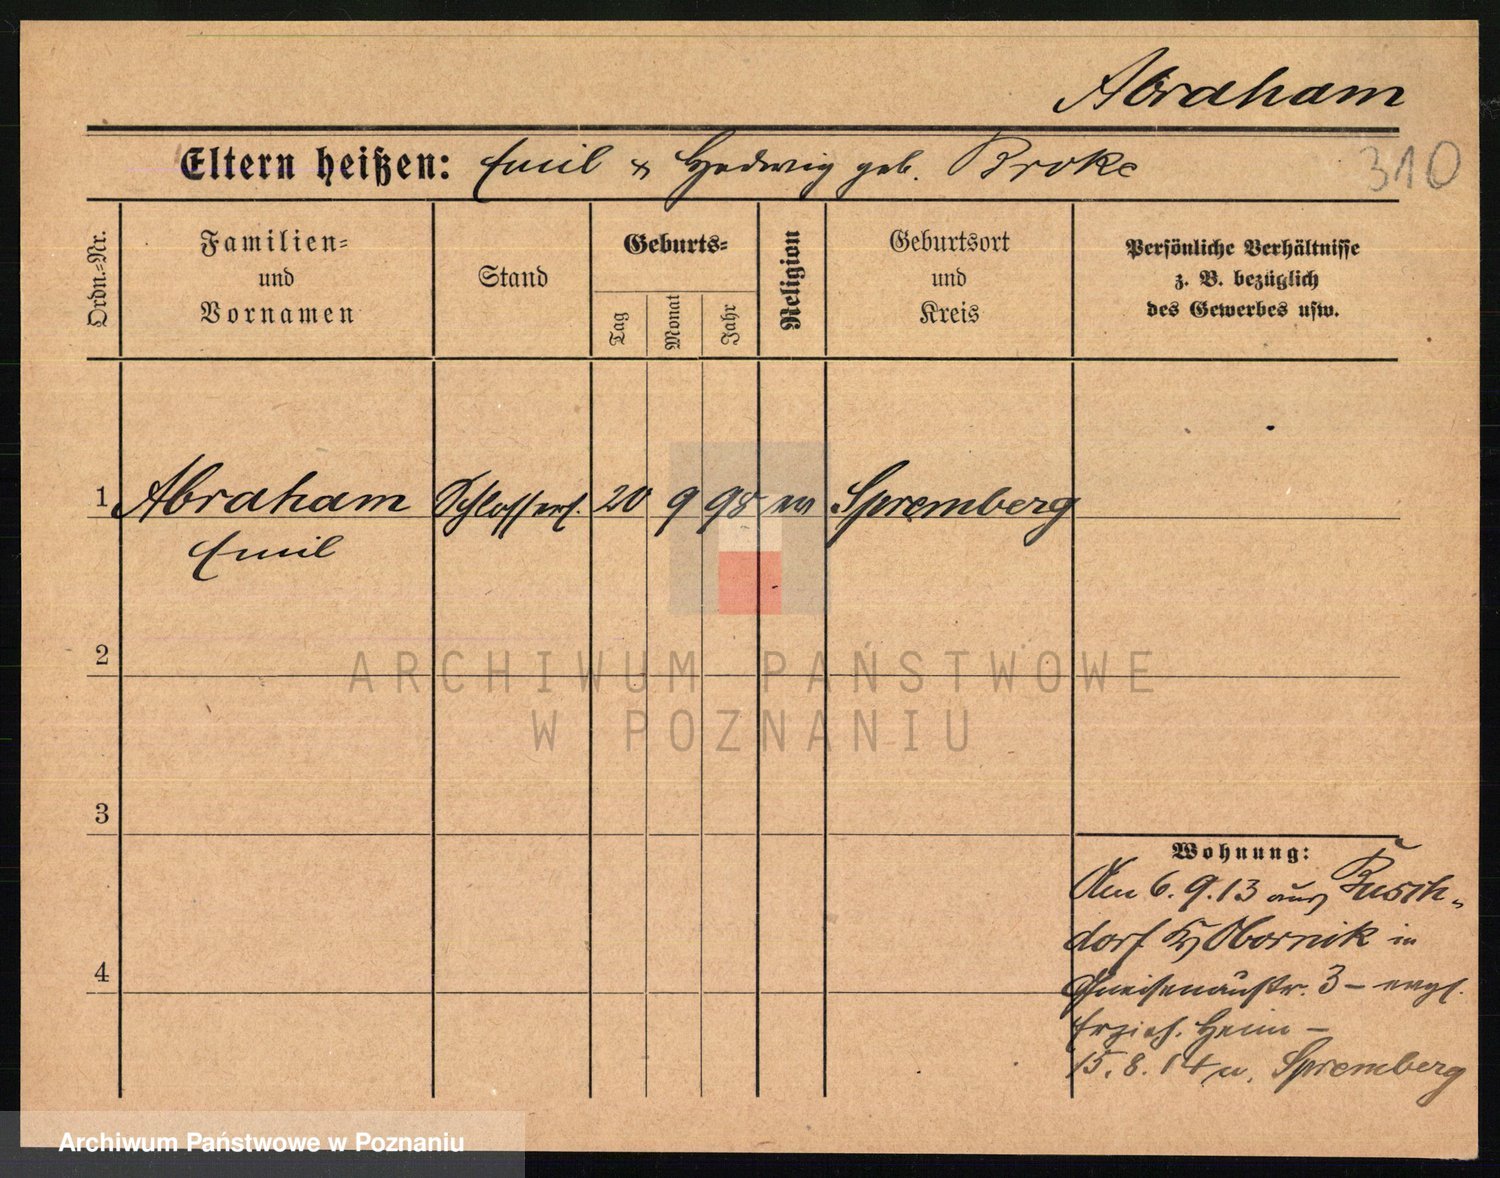 Abraham
Eltern heißen: Emil & Hedwig geb. Broke
310
Ordn.-Nr.
Familien-
und
Vornamen
Stand
Geburts-
Tag
Monat
Jahr
Religion
Geburtsort
und
Kreis
Persönliche Verhältnisse
z. B. bezüglich
des Gewerbes usw.
1 Abraham Schlosserl. 20 9 98 ev Spremberg
Emil
2
ARCHIWUM PAŃSTWOWE
W POZNANIU
3
Wohnung:
Am 6.9.13 aus Busch-
dorf Kr Obornik in
Gneisenaustr. 3 – evgl.
Erzieh. Heim –
4
15.8.14 n. Spremberg
Archiwum Państwowe w Poznaniu